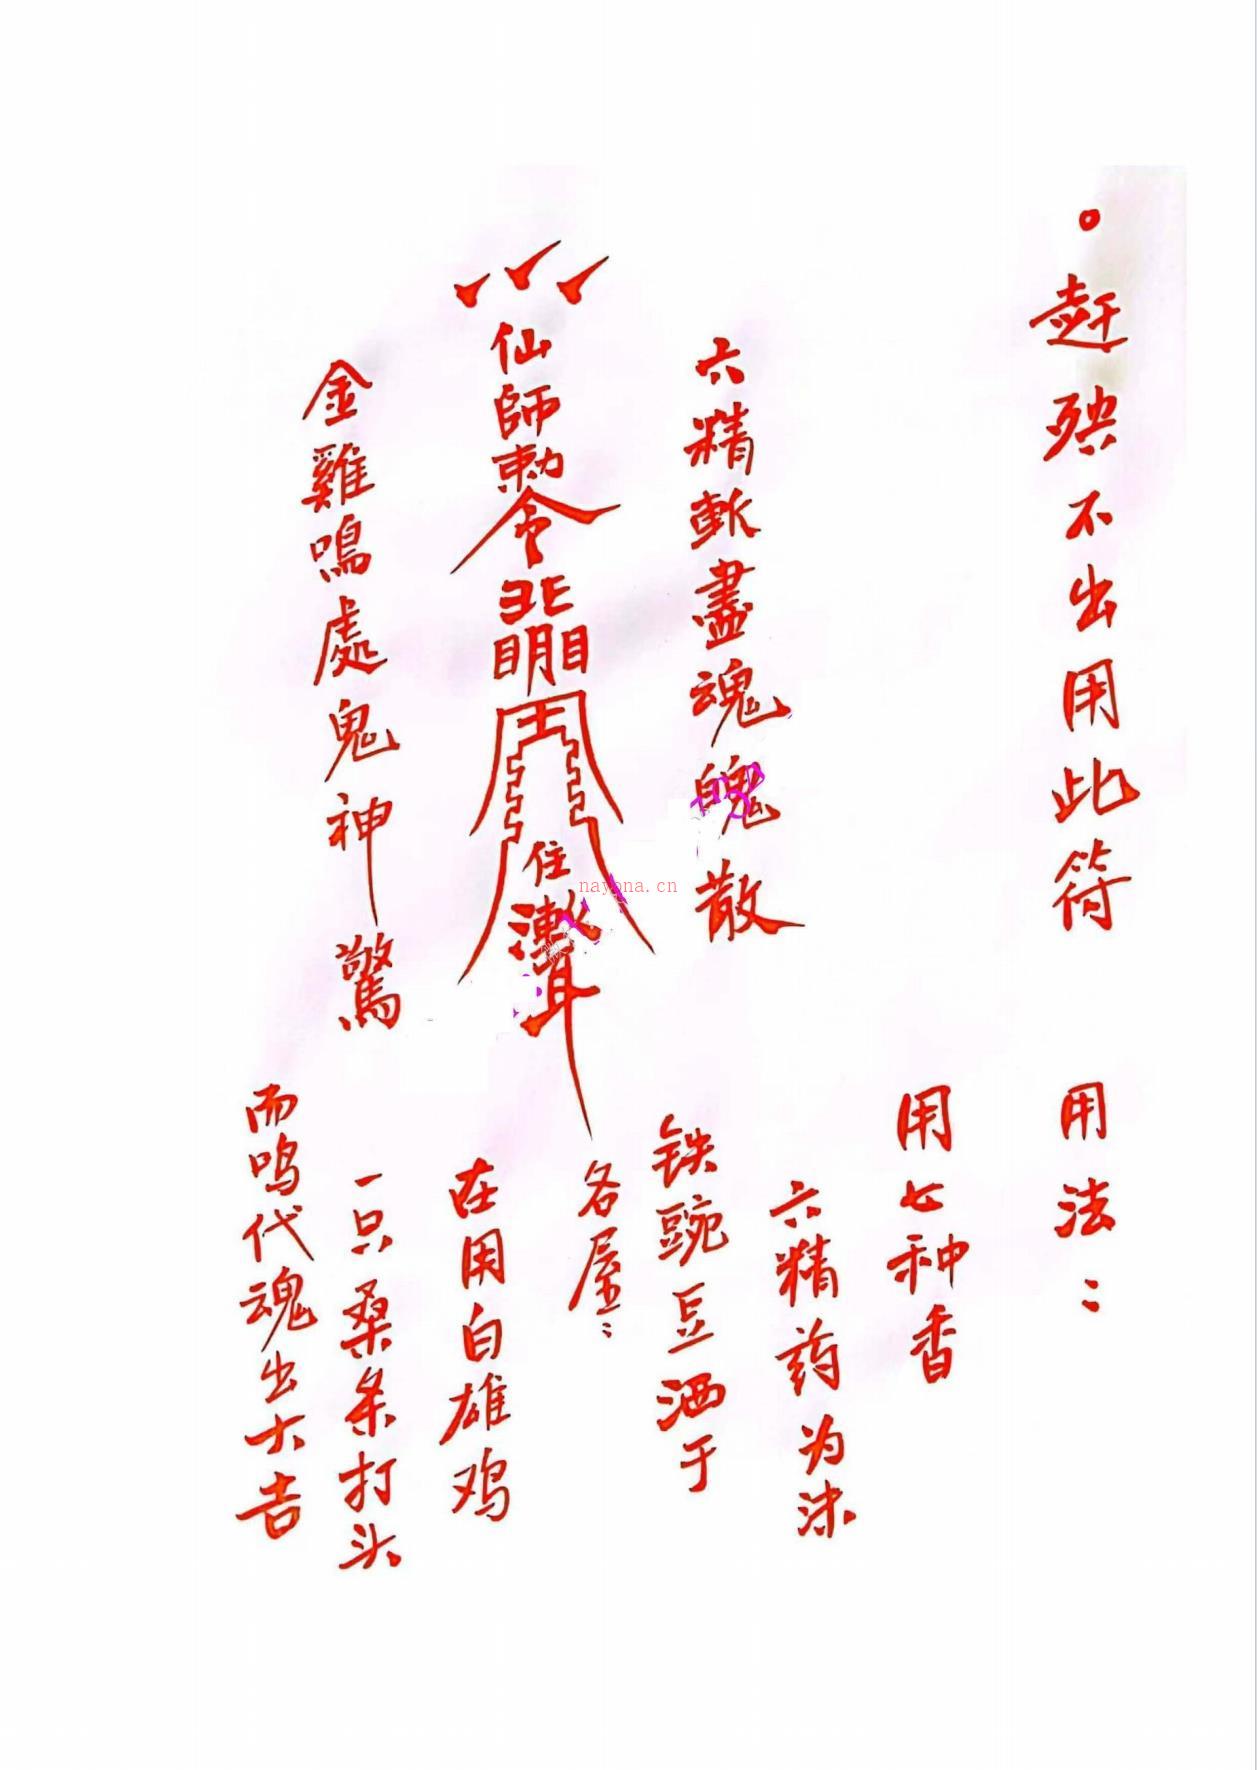 赶殃不出用此符
用法：
用七种香
六精药为沫
铁豌豆洒于
各屋：
在用白雄鸡
一只桑条打头
而鸣代魂出大吉
六精斩盡魂魄散
仙師勅令
金雞鳴處鬼神驚
nayona.cn